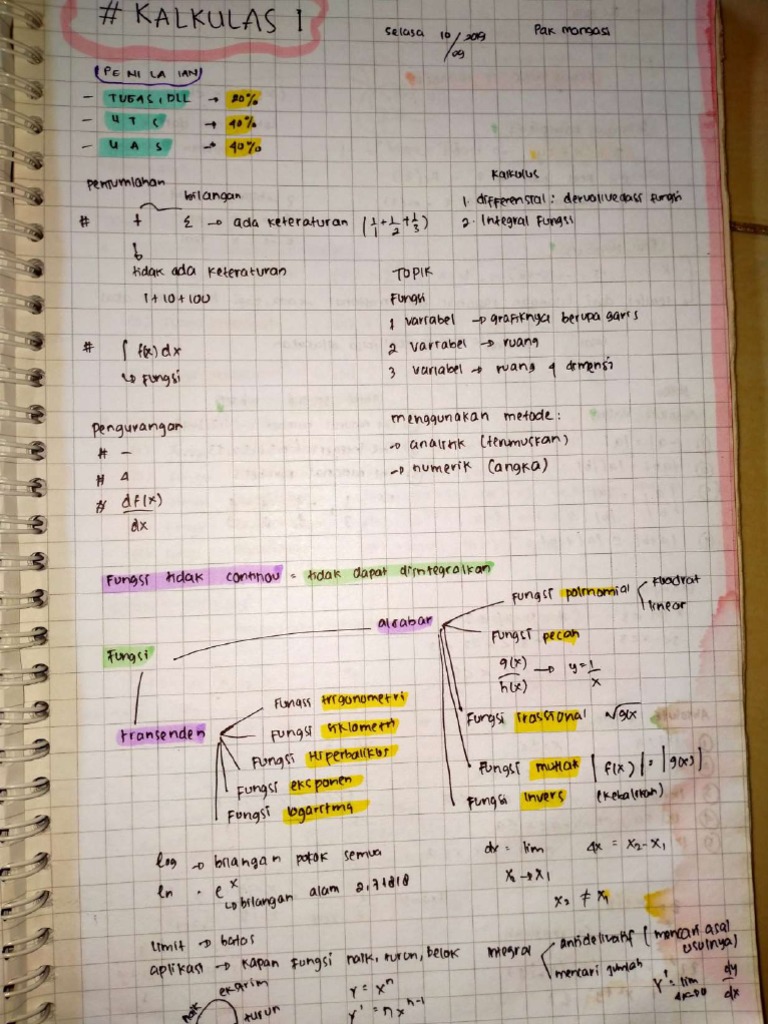 # KALKULAS 1
selasa 10/09 2019
Pak mangasi
PENILAIAN
- TUGAS, DLL → 20%
- UTS → 40%
- UAS → 40%
Penjumlahan
bilangan
# + Σ → ada keteraturan (1/1 + 1/2 + 1/3)
↳ tidak ada keteraturan
1 + 10 + 100
# ∫ f(x) dx
↳ Fungsi
Pengurangan
# -
# Δ
# df(x)/dx
Kalkulus
1. differensial : derivative dari fungsi
2. Integral Fungsi
TOPIK
Fungsi
1 variabel → grafiknya berupa garis
2 variabel → ruang
3 variabel → ruang 4 dimensi
menggunakan metode:
→ analitik (terumuskan)
→ numerik (angka)
Fungsi tidak continou = tidak dapat diintegralkan
Fungsi
aljabar
Fungsi polinomial
kuadrat
linear
Fungsi pecah
g(x)/h(x) → y = 1/x
Fungsi irrasional √g(x)
Fungsi mutlak |f(x)| = |g(x)|
Fungsi invers (kebalikan)
transenden
Fungsi trigonometri
Fungsi siklometri
Fungsi Hiperbalikus
Fungsi eksponen
Fungsi logaritma
log → bilangan pokok semua
ln . eˣ
↳ bilangan alam 2,71818
dx = lim Δx = x₂ - x₁
x₂ → x₁
x₂ ≠ x₁
limit → batas
aplikasi → kapan fungsi naik, turun, belok
ekstrim
naik
turun
y = xⁿ
y' = nxⁿ⁻¹
integral
antiderivatif (mencari asal usulnya)
mencari jumlah
y' = lim Δx→0 dy/dx